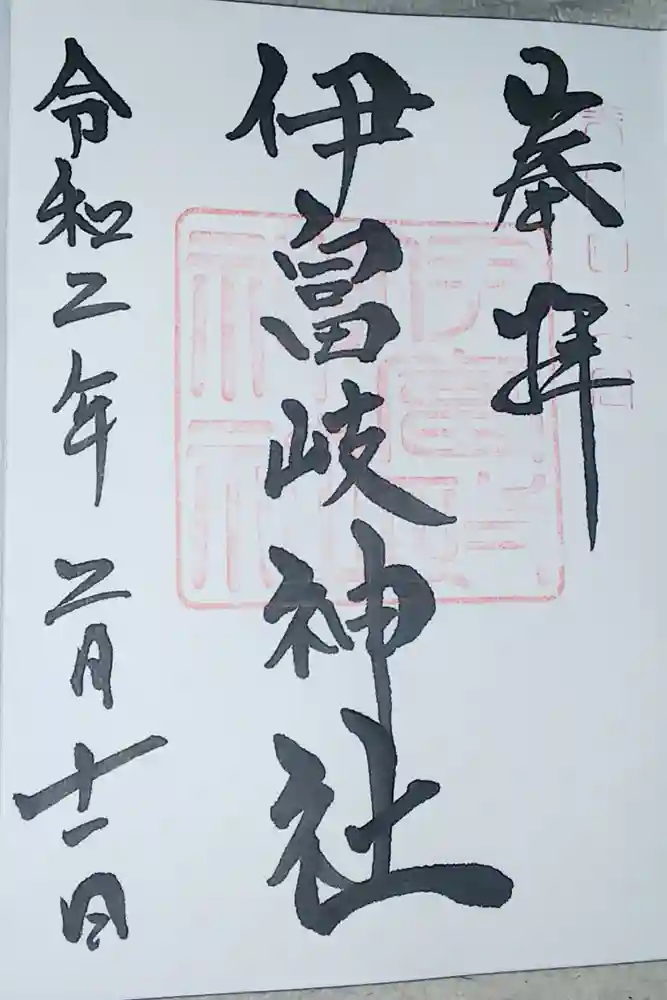 奉拝
伊富岐神社
令和二年二月十一日